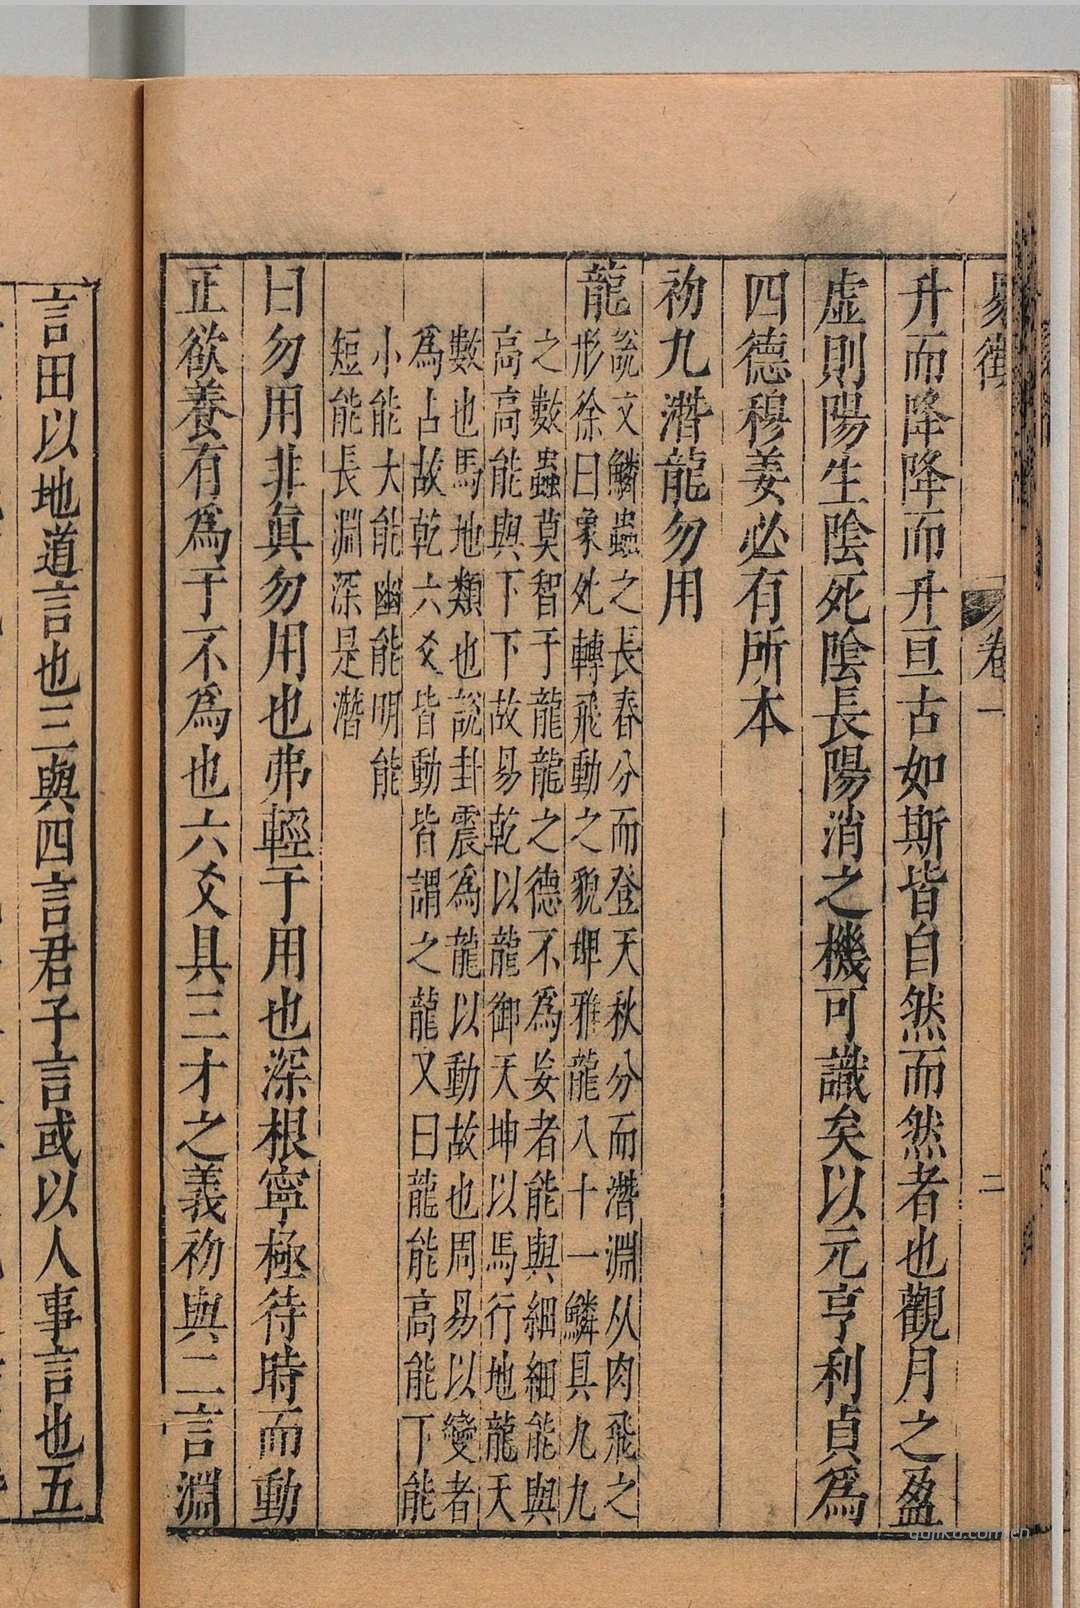 卷一
二
升而降降而升亘古如斯皆自然而然者也觀月之盈
虛則陽生陰死陰長陽消之機可識矣以元亨利貞爲
四德穆姜必有所本
初九潛龍勿用
龍說文鱗蟲之長春分而登天秋分而潛淵从肉飛之
形徐曰象夗轉飛動之貌埤雅龍八十一鱗具九九
之數蟲莫智于龍龍之德不爲妄者能與細細能與
高高能與下下故易乾以龍御天坤以馬行地龍天
數也馬地類也說卦震爲龍以動故也周易以變者
爲占故乾六爻皆動皆謂之龍又曰龍能高能下能
小能大能幽能明能
短能長淵深是潛
曰勿用非眞勿用也弗輕于用也深根寧極待時而動
正欲養有爲于不爲也六爻具三才之義初與二言淵
言田以地道言也三與四言君子言或以人事言也五